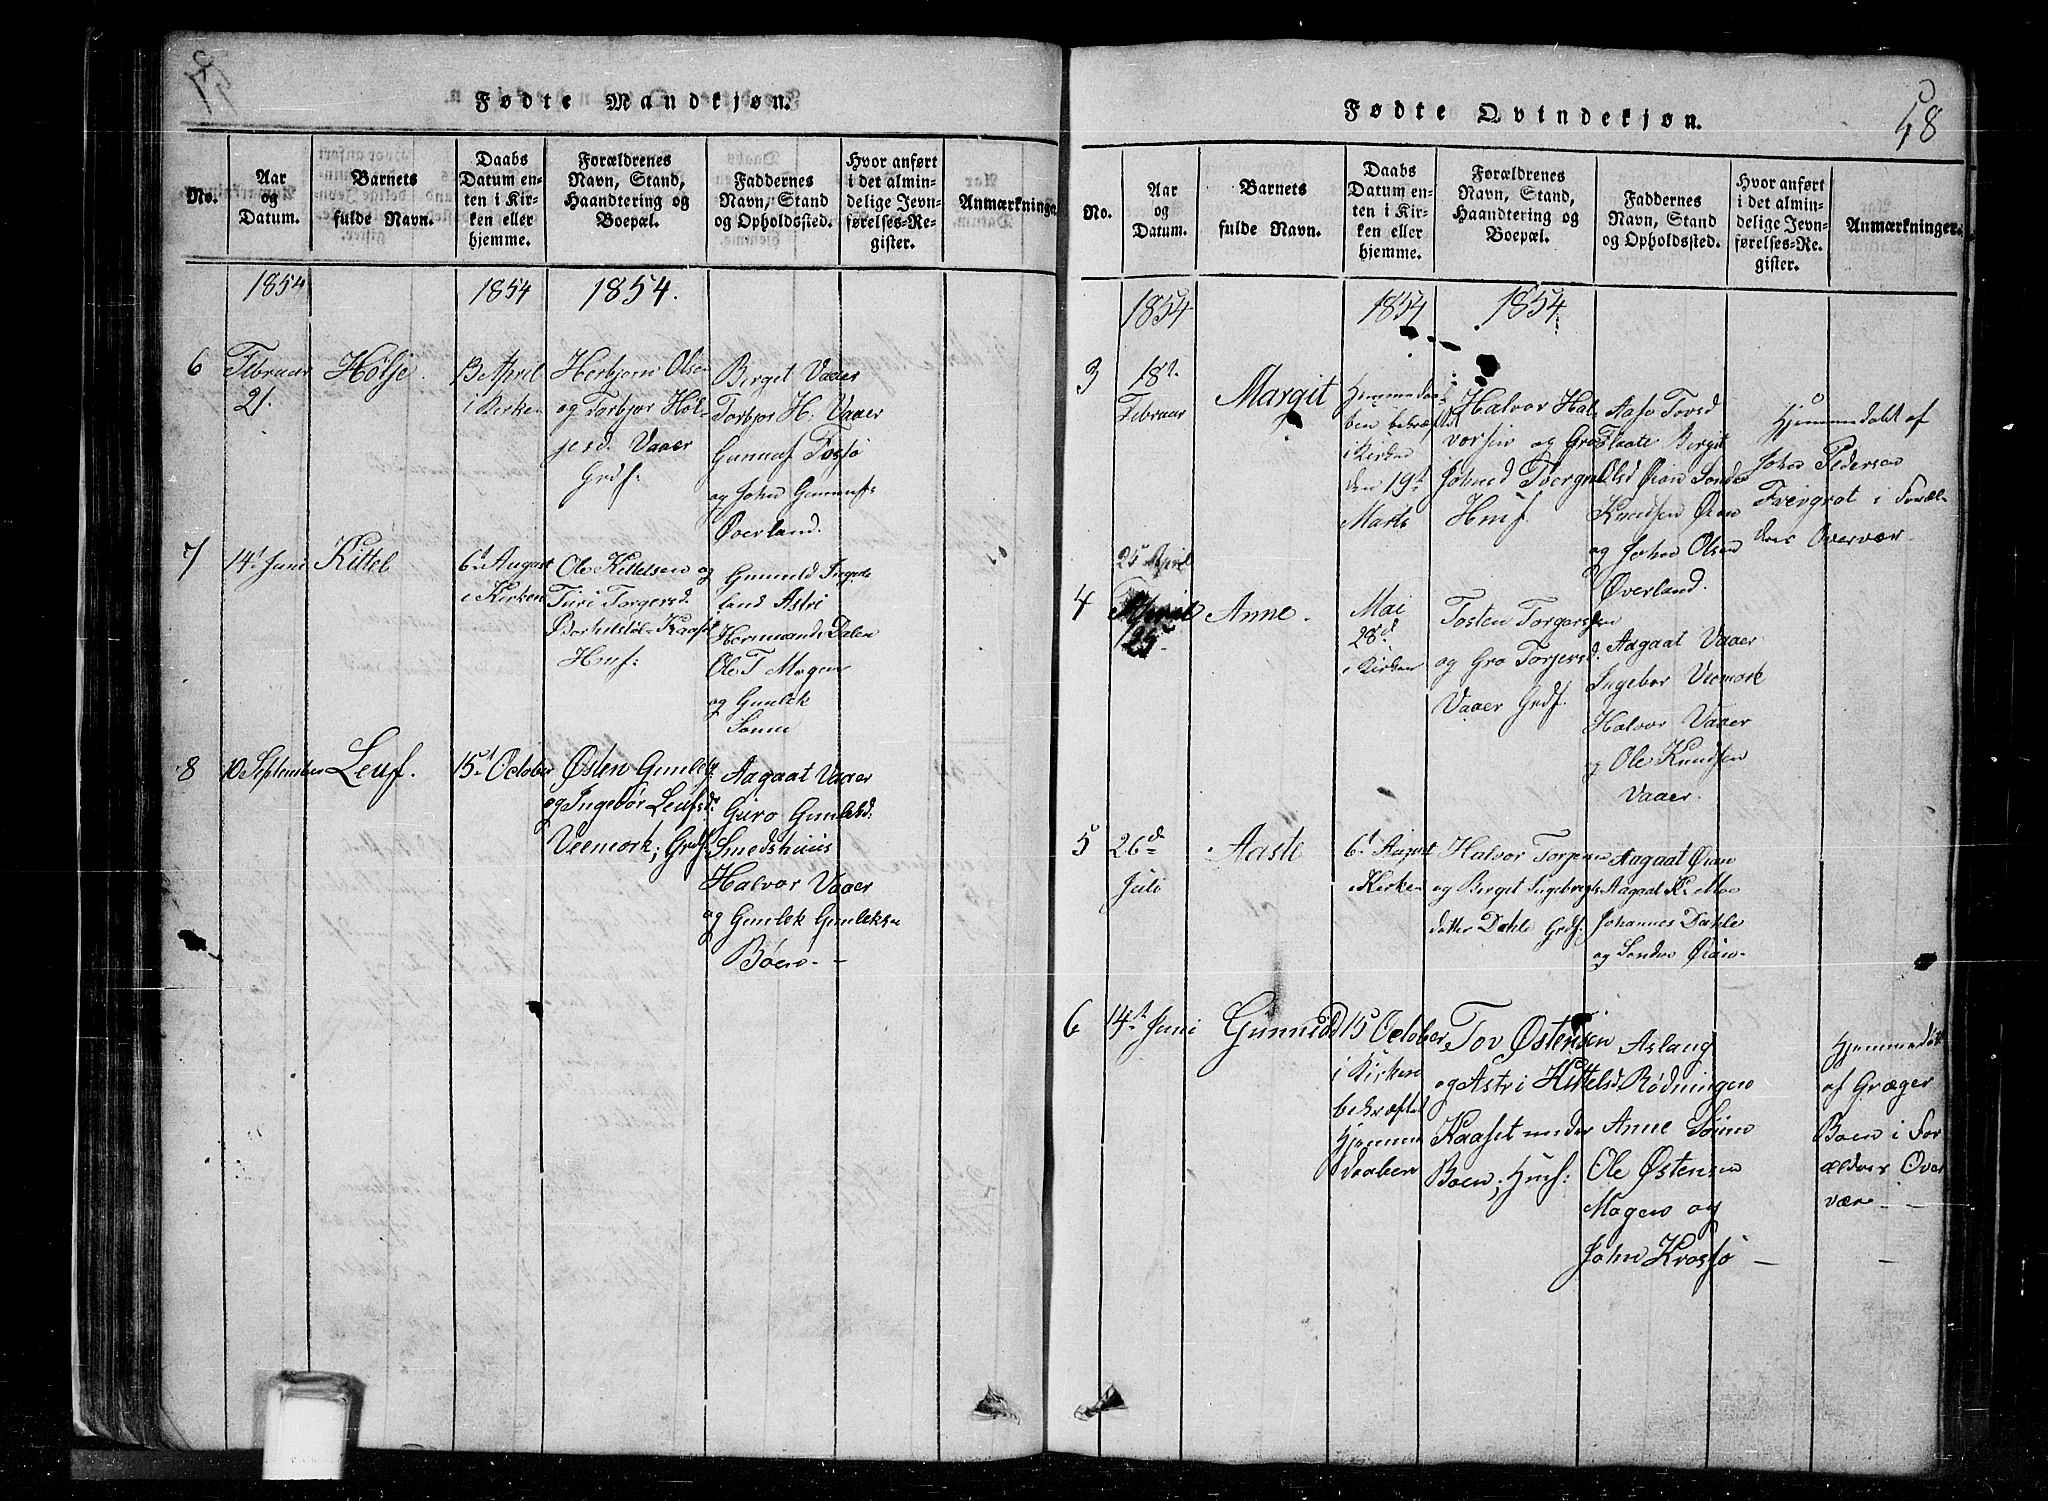 Fødte Mandkjøn.
No.
Aar
og
Datum.
Barnets
fulde Navn.
Daabs
Datum en-
ten i Kir-
ken eller
hjemme.
Forældrenes
Navn, Stand,
Haandtering og
Boepæl.
Faddernes
Navn, Stand
og Opholdssted.
Hvor anført
i det almin-
delige Jevn-
førelses-Re-
gister.
Anmærkninger
1854
1854
1854.
6
Februar
21.
Hølje.
13 April
i Kirken
Herbjorn Olsen
og Torbjor Høl-
jesd. Vaaer
Grdf.
Berget Vaaer
Torbjor H. Vaaer
Gunnuf Fossø
og John Gunnufs.
Øverland.
7
14d Juni
Kittel
6d August
i Kirken
Ole Kittelsen og
Turi Torgersd.
Borhelstøl Kaaset
Hmf:
Gunuld
land Astri
Hormmands Dalen
Ole T Mogen
og Gunlek
Sønne
8
10 September
Leuf.
15d October
Østen Gunleks.
og Ingebør Leufsd.
Veemork; Grdf.
Aagaat Vaaer
Guro Gunleksd:
Smedshuus
Halvor Vaaer
og Gunlek Gunleksen
Boen. -
Fødte Qvindekjøn.
58
No.
Aar
og
Datum.
Barnets
fulde Navn.
Daabs
Datum en-
ten i Kir-
ken eller
hjemme.
Forældrenes
Navn, Stand,
Haandtering og
Boepæl.
Faddernes
Navn, Stand
og Opholdssted.
Hvor anført
i det almin-
delige Jevn-
førelses-Re-
gister.
Anmærkninger.
1854
1854
1854.
3
18d.
Februar
Margit
Hjemmedaa-
ben bekræft
i Kirken
den 19d
Marts
Halvor Hal-
vorsen og Gro
Johnsd Tvergrot
Hmf.
Aase Tovsd
Flaate Bergit
Olsd Øian Sondre
Knudsen Øian
og John Olsen
Øverland.
Hjemmedøbt af
John Pedersen
Tveigrot i Foræl-
dres Overvær.
25 April
4
April
25
Anne.
Mai
28d
i Kirken
Tosten Torgersen
og Gro Torjersd.
Vaaer Grdf.
Aagaat Vaaer
Ingebor Veemork
Halvor Vaaer
og Ole Knudsen
Vaaer.
5
26d
Juli
Aaste
6d August
i Kirken
Halvor Torjersen
og Berget Ingebregts
datter Dahle Grdf.
Aagaat Øian
Aagaat K. Moe
Johannes Dahle
og Sondre Øian.
6
14d Juni
Gunnild
15 October
i Kirken
bekræftet
Hjemme
daaben
Tov Østensen
og Astri Kittelsd
Kaaset under
Boen; Hmf:
Aslaug
Rødningen
Anne Sønne
Ole Østensen
Mogen og
John Krossø
Hjemmedøbt
af Græger
Boen i For
ældres Over
vær. -